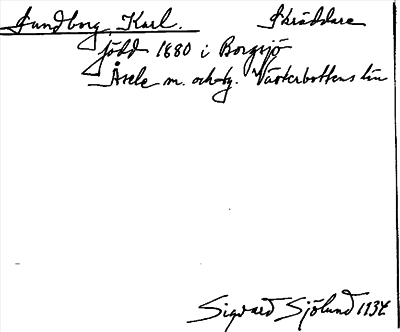 Sundborg, Karl. Skräddare
född 1880 i Borgsjö
Åsele m. och tg. Västerbottens län
Sigvard Sjölund 1934